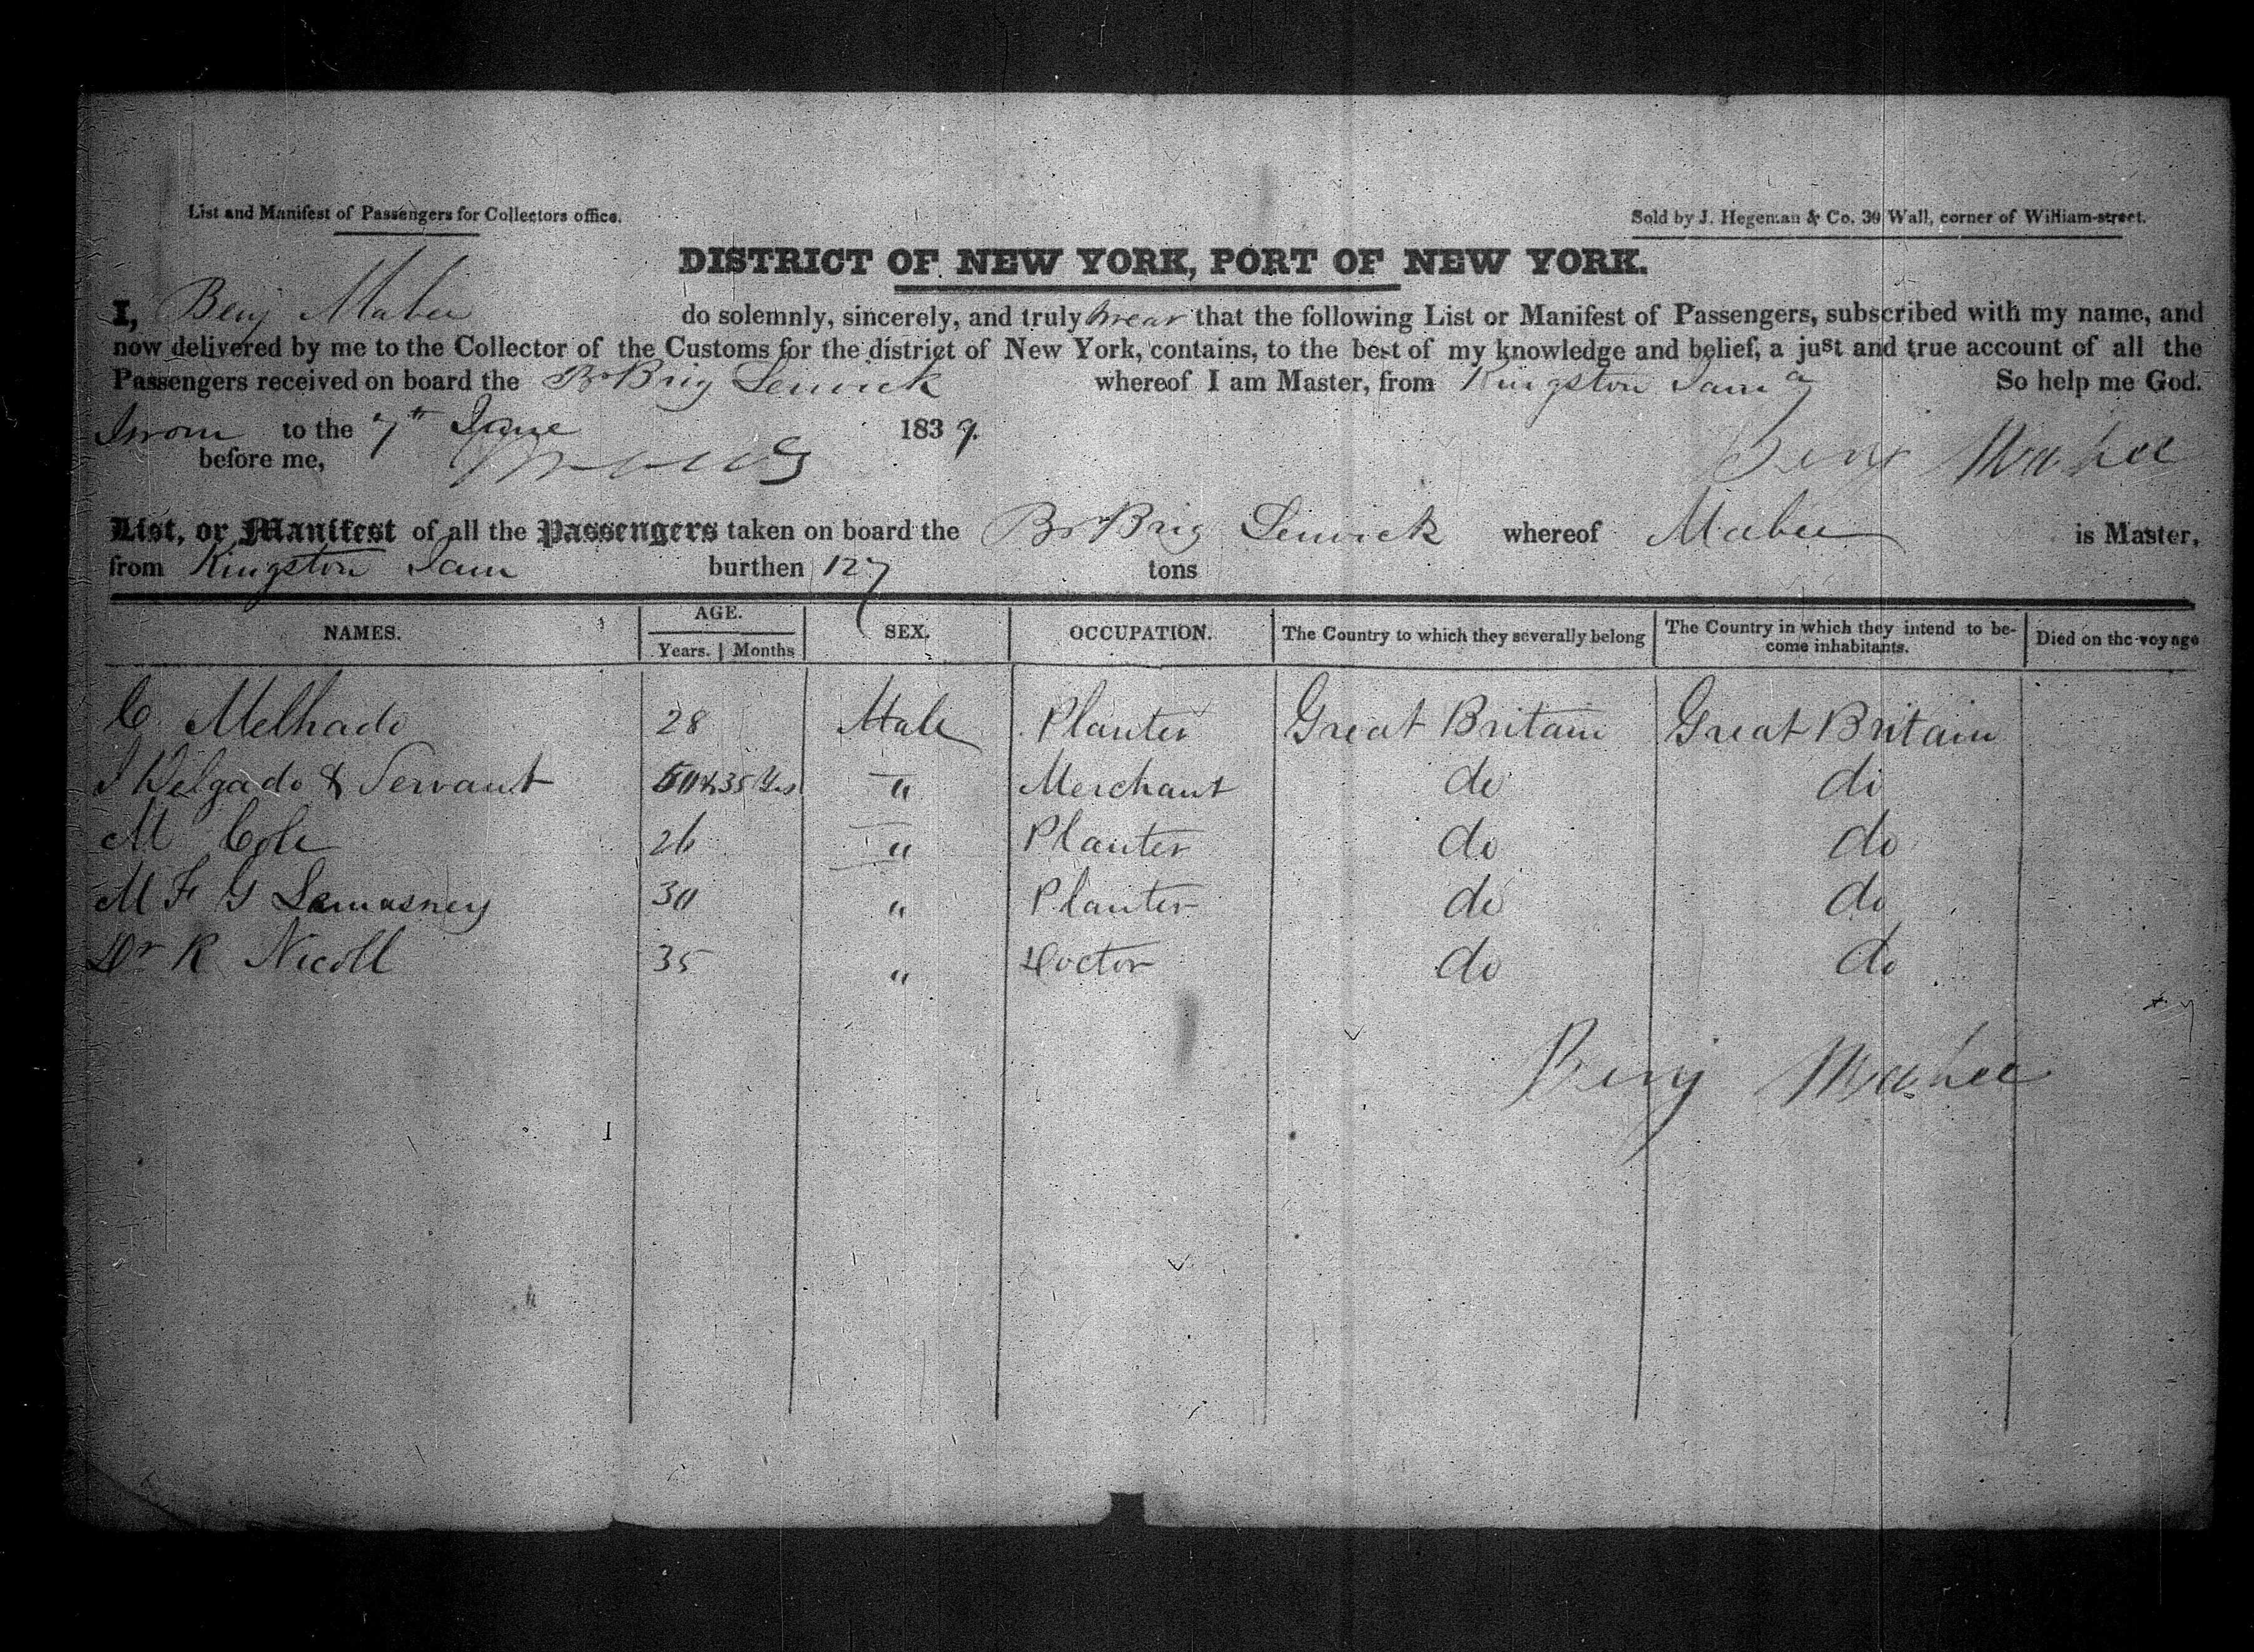 List and Manifest of Passengers for Collectors office.
Sold by J. Hegeman & Co. 39 Wall, corner of William-street.
DISTRICT OF NEW YORK, PORT OF NEW YORK.
I, Benj Mabee do solemnly, sincerely, and truly swear that the following List or Manifest of Passengers, subscribed with my name, and
now delivered by me to the Collector of the Customs for the district of New York, contains, to the best of my knowledge and belief, a just and true account of all the
Passengers received on board the Br Brig whereof I am Master, from Kingston Jama So help me God.
Sworn to the 7th June 1839.
before me, Benj Mabee
List, or Manifest of all the Passengers taken on board the Br Brig whereof Mabee is Master,
from Kingston Jam burthen 127 tons
NAMES. AGE. SEX. OCCUPATION. The Country to which they severally belong The Country in which they intend to be-
come inhabitants. Died on the voyage
Years. Months
C. Melhado 28 Male Planter Great Britain Great Britain
J Delgado & Servant 50 & 35 Yrs " Merchant do do
M Cole 26 " Planter do do
M F G Lamasney 30 " Planter do do
Dr R Nicoll 35 " Doctor do do
Benj Mabee